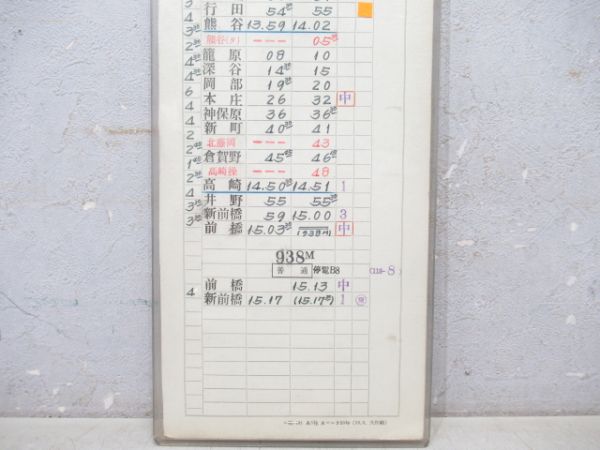 行田 54 55
3 熊谷 13.59 14.02
2 熊谷(タ) --- 05
4 籠原 08 10
4 深谷 14 15
4 岡部 19 20
6 本庄 26 32 中
4 神保原 36 36
4 新町 40 41
2 北藤岡 --- 43
1 倉賀野 45 46
2 高崎操 --- 48
4 高崎 14.50 14.51 1
3 井野 55 55
3 新前橋 59 15.00 3
3 前橋 15.03 (938M) 中
938M
普通 停電B8 -8)
前橋 15.13 中
4 新前橋 15.17 (15.17) 1